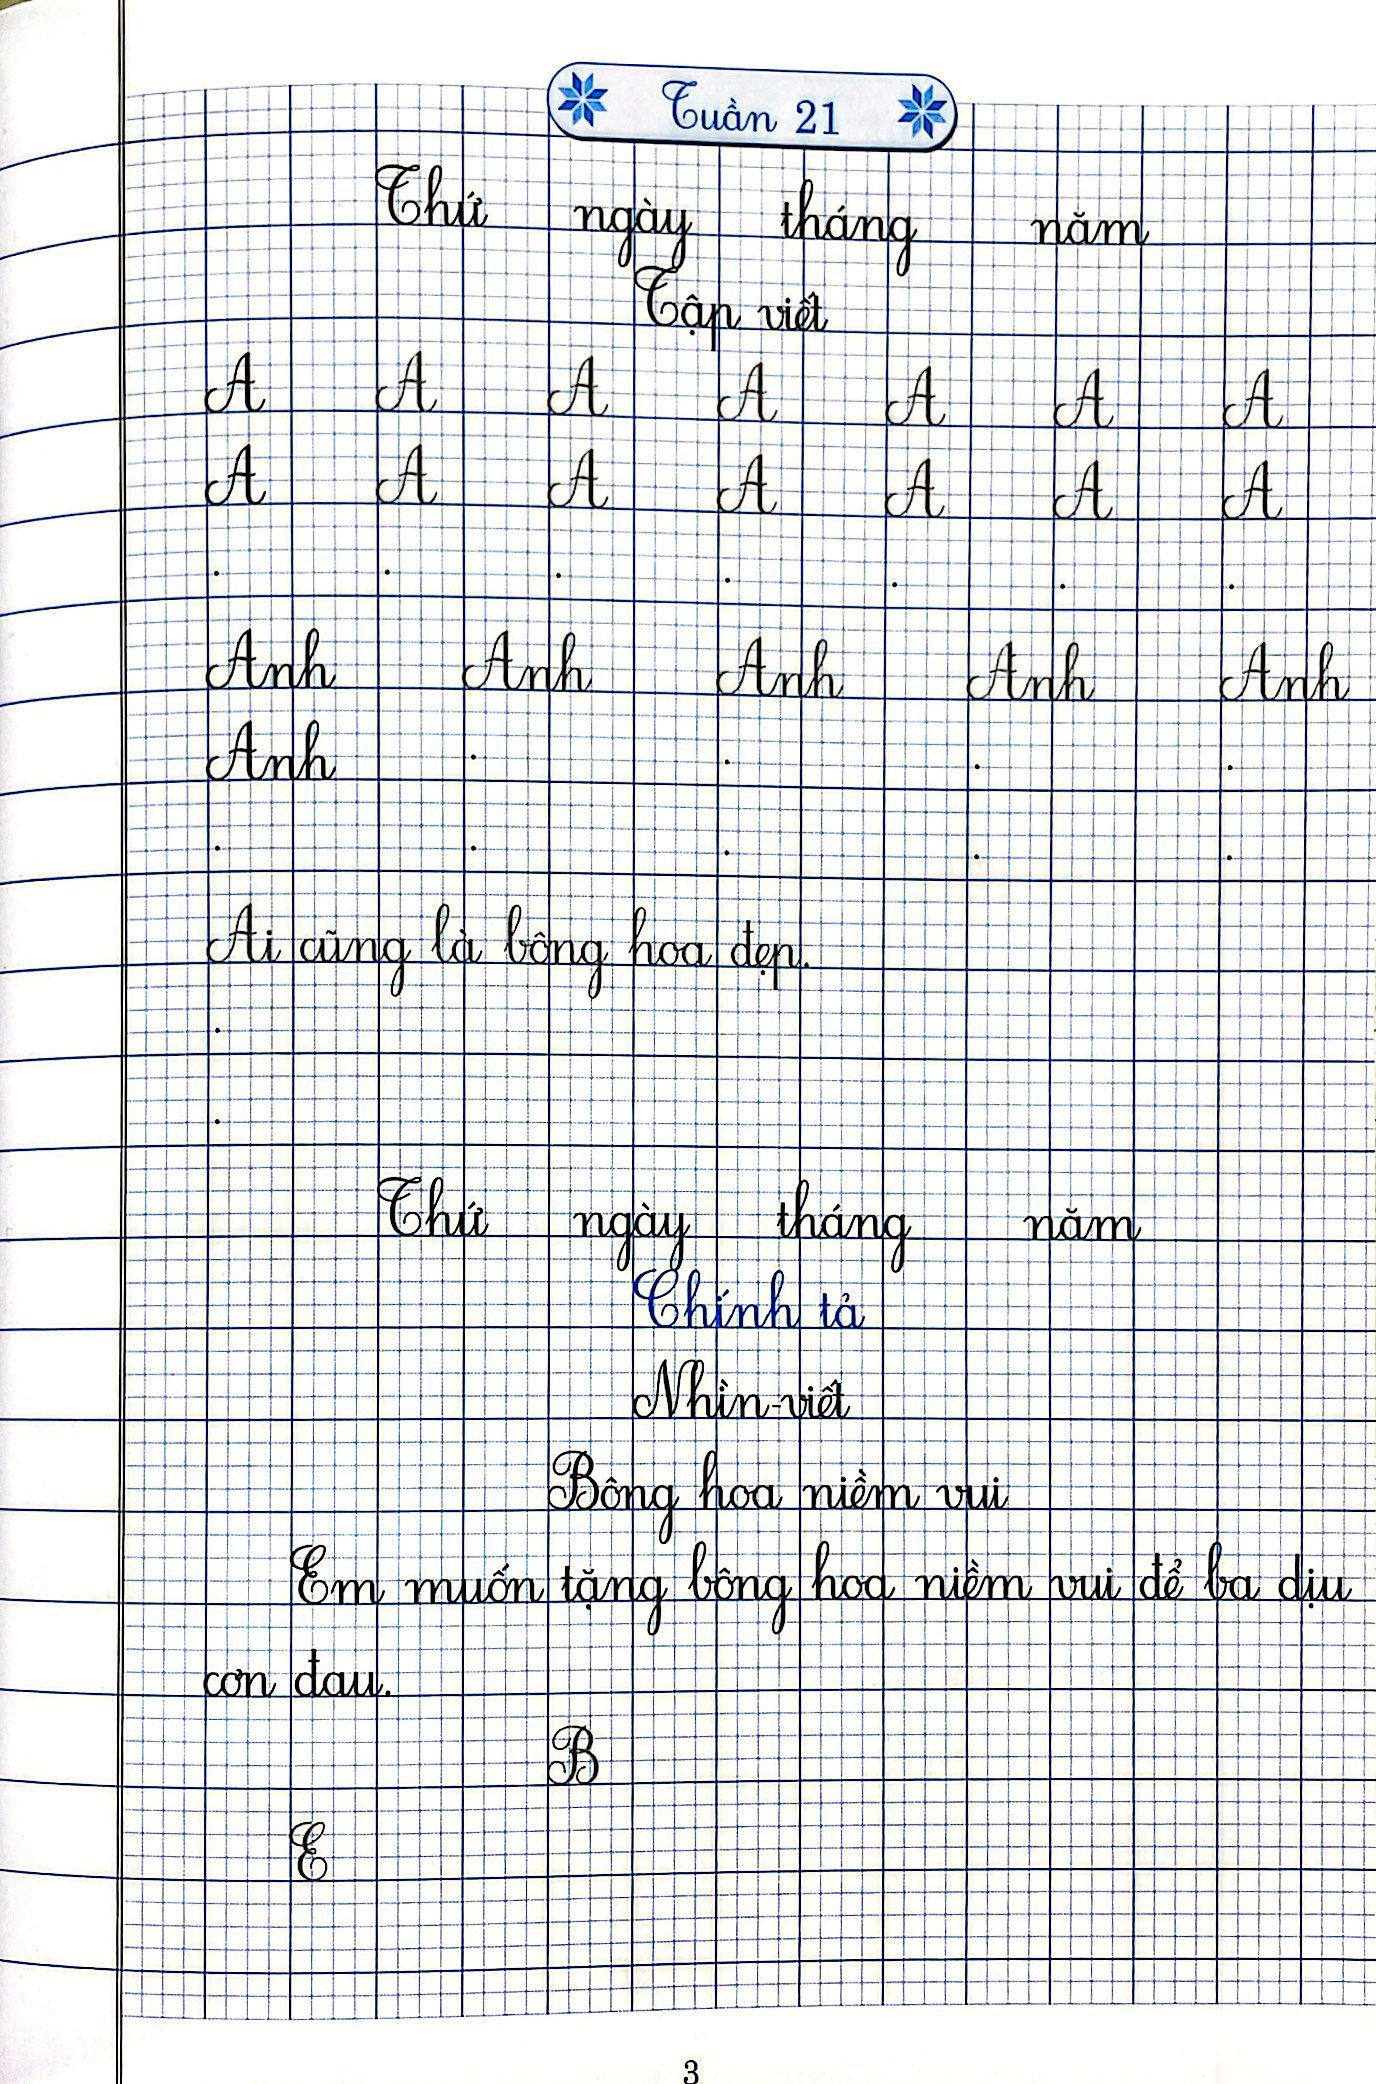 Tuần 21
Thứ ngày tháng năm
Tập viết
A A A A A A A
A A A A A A A
. . . . . . .
Anh Anh Anh Anh Anh
Anh . . . .
. . . . .
Ai cũng là bông hoa đẹp.
.
.
Thứ ngày tháng năm
Chính tả
Nhìn-viết
Bông hoa niềm vui
Em muốn tặng bông hoa niềm vui để ba dịu
cơn đau.
B
E
3